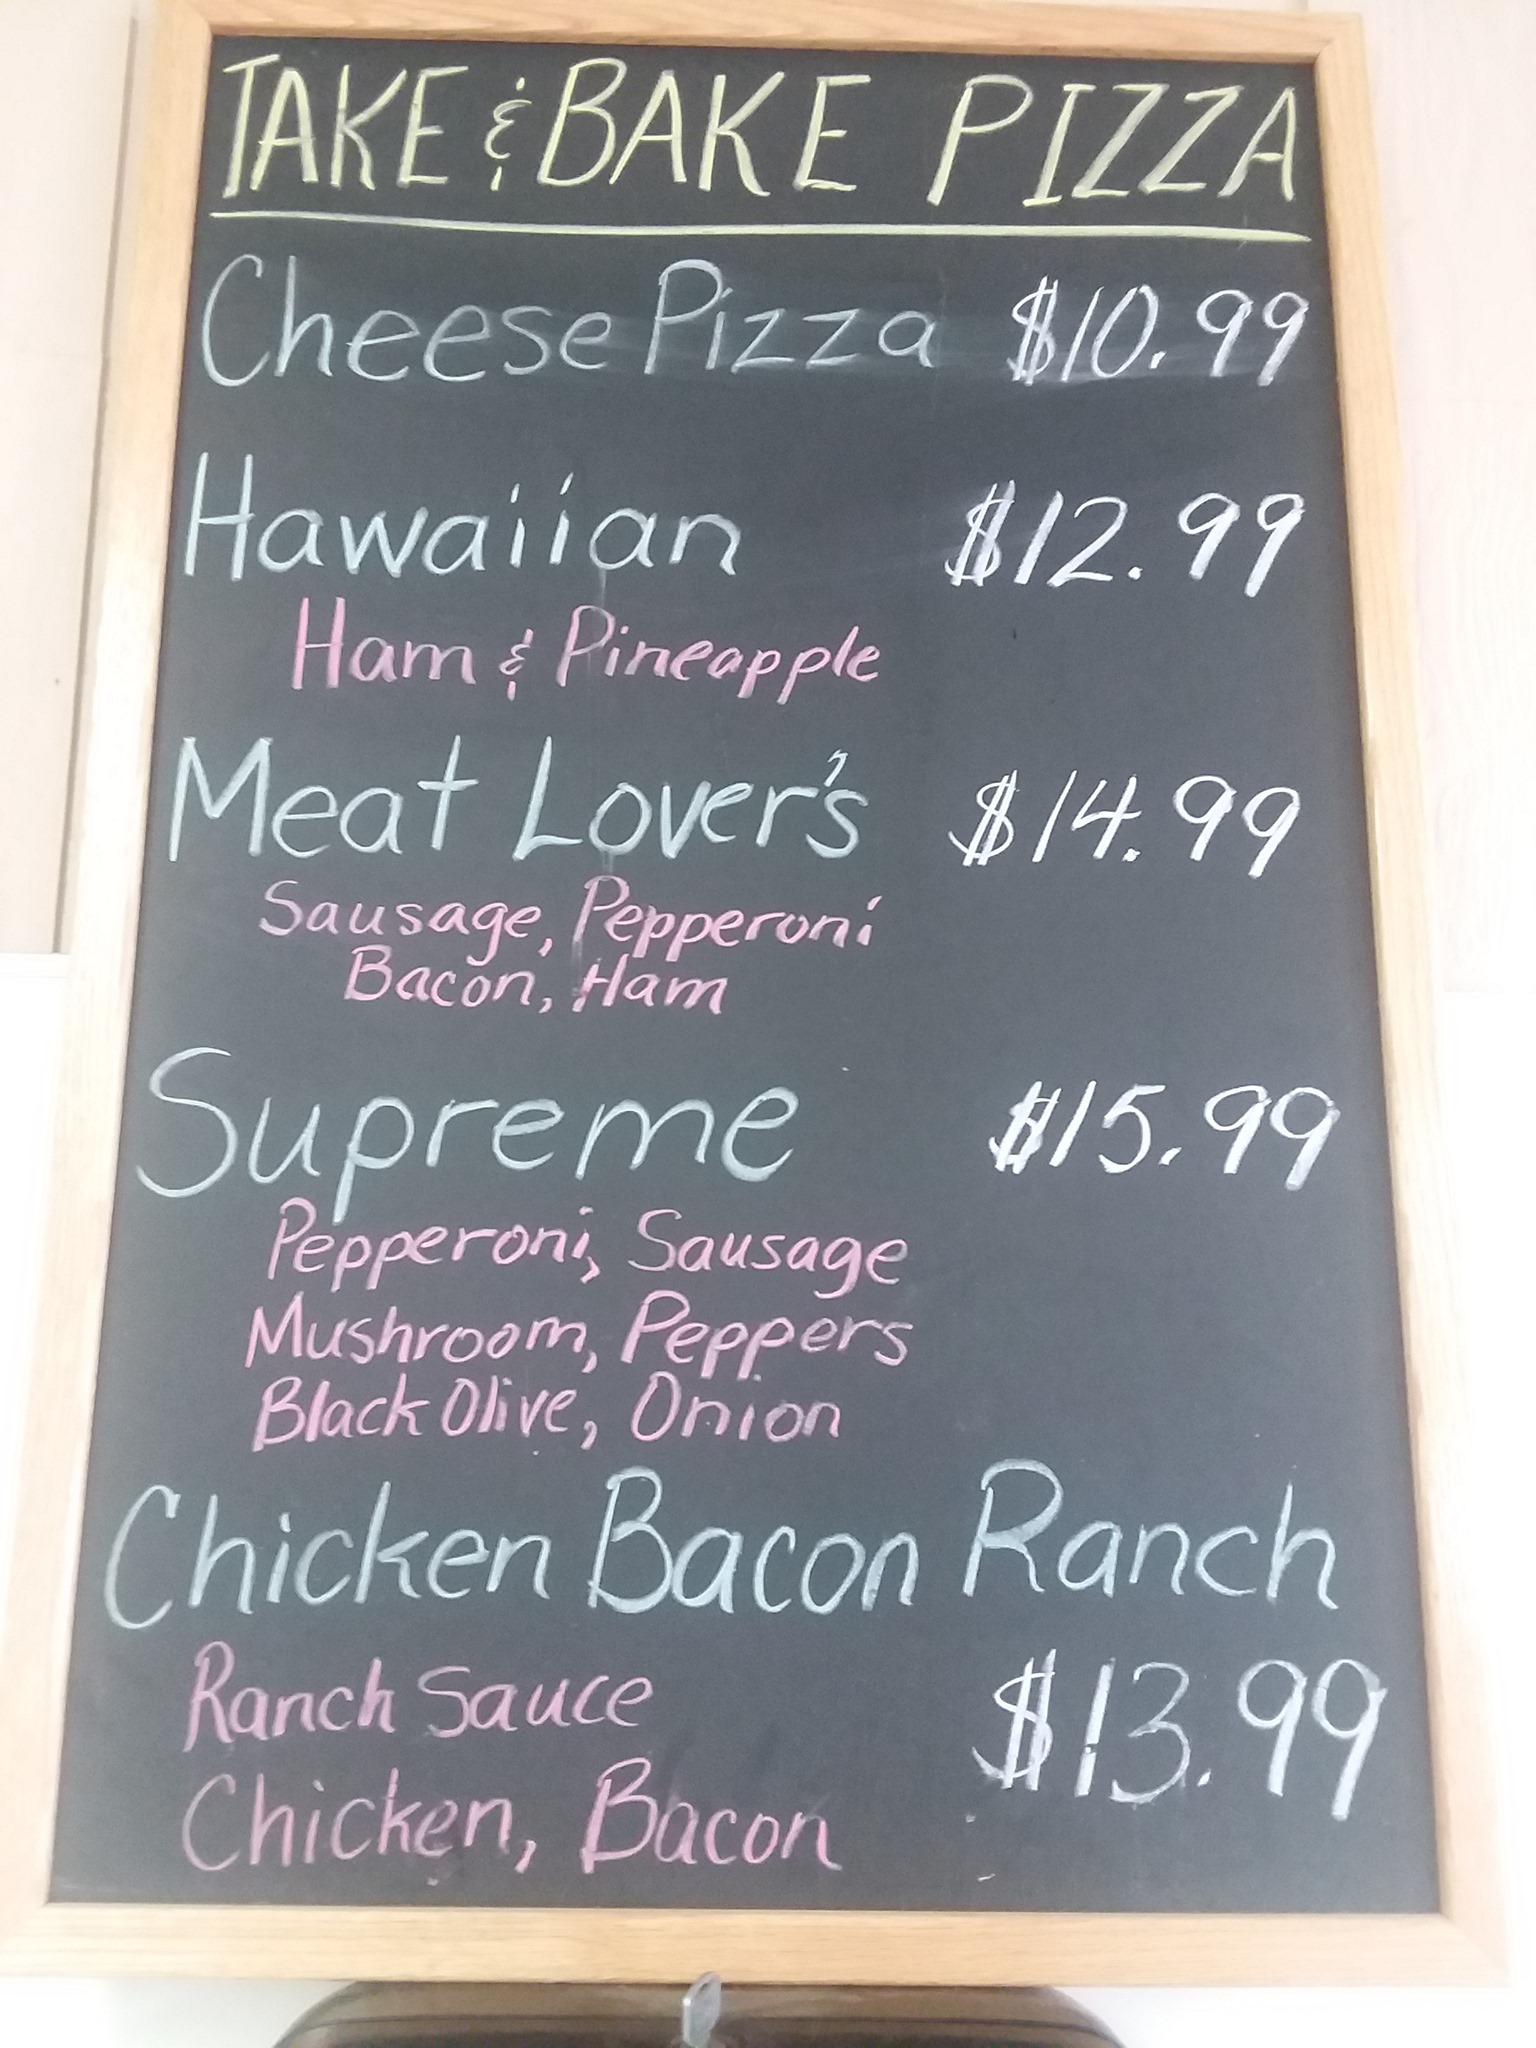 TAKE & BAKE PIZZA
Cheese Pizza $10.99
Hawaiian $12.99
Ham & Pineapple
Meat Lover's $14.99
Sausage, Pepperoni
Bacon, Ham
Supreme $15.99
Pepperoni, Sausage
Mushroom, Peppers
Black Olive, Onion
Chicken Bacon Ranch
Ranch Sauce $13.99
Chicken, Bacon